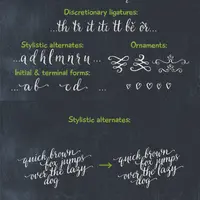 Discretionary ligatures:
...th tr it itc tt bě ôr...
Stylistic alternates: Ornaments:
...a d h l m n r u ...
Initial & terminal forms:
...a b c d ...
Stylistic alternates:
quick brown quick brown
fox jumps fox jumps
over the lazy over the lazy
dog dog